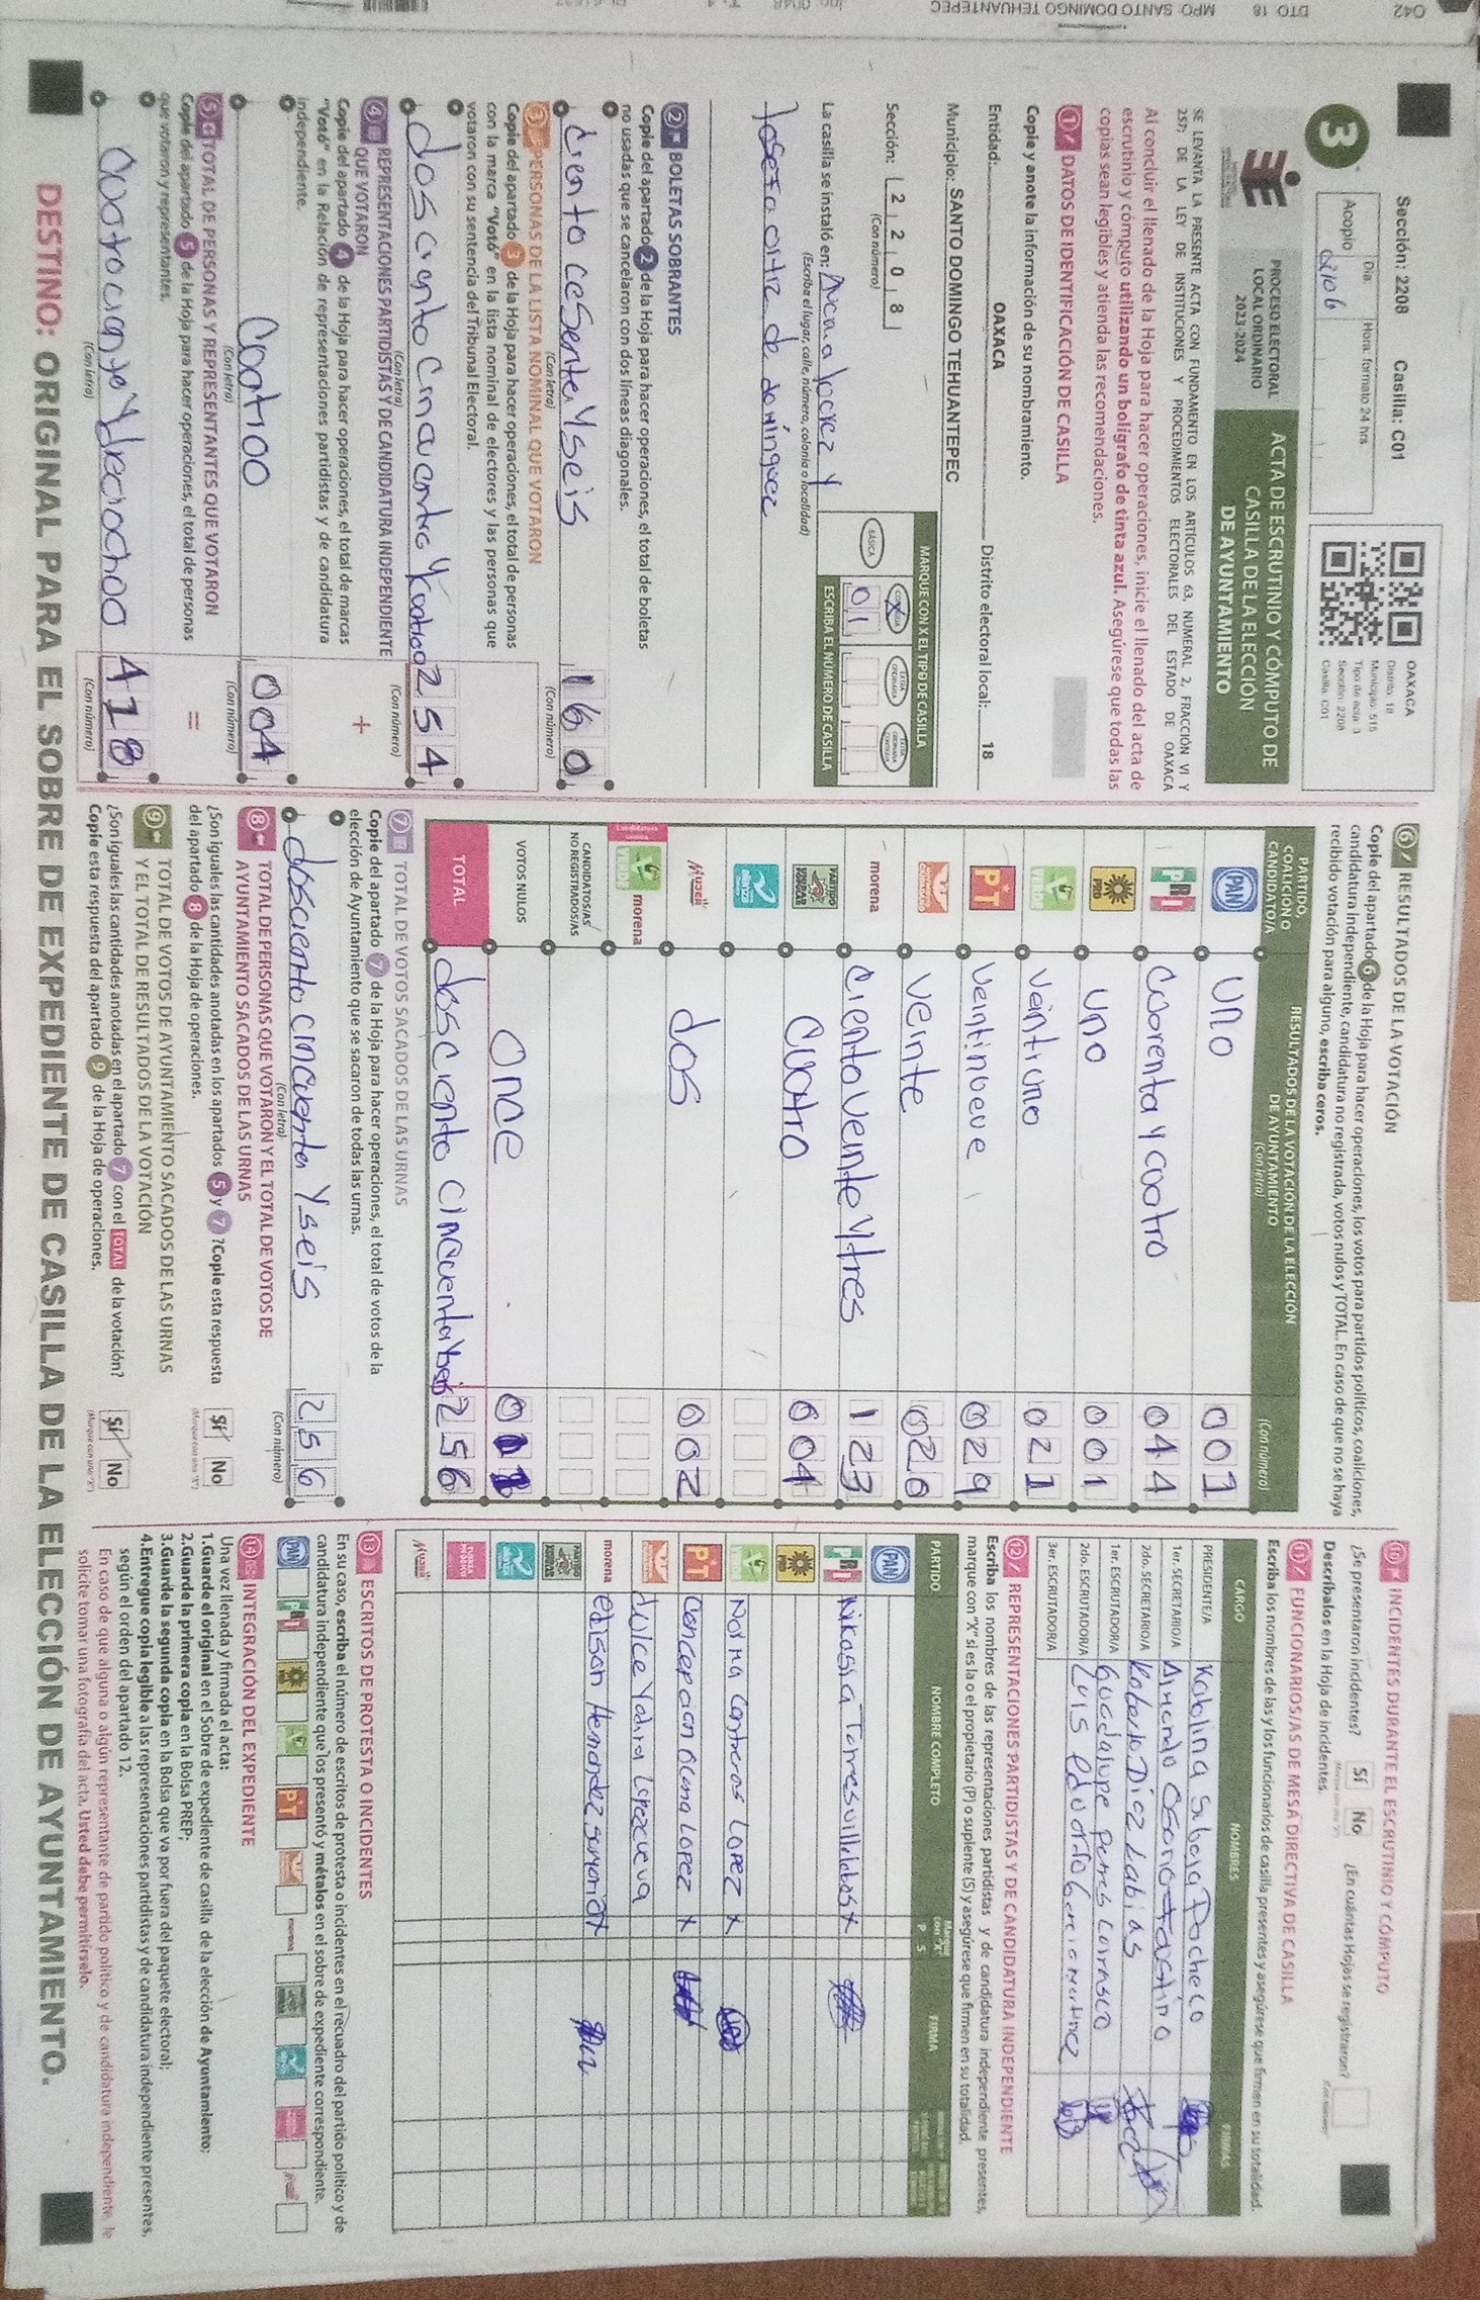 042 DTO 18 MPO SANTO DOMINGO TEHUANTEPEC
Sección: 2208 Casilla: C01
3
Día: Hora: formato 24 hrs
Acopio
OAXACA
Distrito: 18
Municipio: 515
Tipo de acta: 3
Sección: 2208
Casilla: C01
PROCESO ELECTORAL
LOCAL ORDINARIO
2023-2024
ACTA DE ESCRUTINIO Y CÓMPUTO DE
CASILLA DE LA ELECCIÓN
DE AYUNTAMIENTO
SE LEVANTA LA PRESENTE ACTA CON FUNDAMENTO EN LOS ARTÍCULOS 63, NUMERAL 2, FRACCIÓN VI Y
257; DE LA LEY DE INSTITUCIONES Y PROCEDIMIENTOS ELECTORALES DEL ESTADO DE OAXACA
Al concluir el llenado de la Hoja para hacer operaciones, inicie el llenado del acta de
escrutinio y cómputo utilizando un bolígrafo de tinta azul. Asegúrese que todas las
copias sean legibles y atienda las recomendaciones.
1 DATOS DE IDENTIFICACIÓN DE CASILLA
Copie y anote la información de su nombramiento.
Entidad: OAXACA Distrito electoral local: 18
Municipio: SANTO DOMINGO TEHUANTEPEC
Sección: 2 2 0 8
(Con número)
MARQUE CON X EL TIPO DE CASILLA
BÁSICA
X
01
ESCRIBA EL NÚMERO DE CASILLA
La casilla se instaló en:
(Escriba el lugar, calle, número, colonia o localidad)
Josefa ortiz de dominguez
2 BOLETAS SOBRANTES
Copie del apartado 2 de la Hoja para hacer operaciones, el total de boletas
no usadas que se cancelaron con dos líneas diagonales.
160
(Con letra) (Con número)
3 PERSONAS DE LA LISTA NOMINAL QUE VOTARON
Copie del apartado 3 de la Hoja para hacer operaciones, el total de personas
con la marca "Votó" en la lista nominal de electores y las personas que
votaron con su sentencia del Tribunal Electoral.
254
(Con letra) (Con número)
4 REPRESENTACIONES PARTIDISTAS Y DE CANDIDATURA INDEPENDIENTE
QUE VOTARON
+
Copie del apartado 4 de la Hoja para hacer operaciones, el total de marcas
"Votó" en la Relación de representaciones partidistas y de candidatura
independiente.
Coatroo 004
(Con letra) (Con número)
5 TOTAL DE PERSONAS Y REPRESENTANTES QUE VOTARON
=
Copie del apartado 5 de la Hoja para hacer operaciones, el total de personas
que votaron y representantes.
418
(Con letra) (Con número)
6 RESULTADOS DE LA VOTACIÓN
Copie del apartado 6 de la Hoja para hacer operaciones, los votos para partidos políticos, coaliciones,
candidatura independiente, candidatura no registrada, votos nulos y TOTAL. En caso de que no se haya
recibido votación para alguno, escriba ceros.
PARTIDO,
COALICIÓN O
CANDIDATO/A
RESULTADOS DE LA VOTACIÓN DE LA ELECCIÓN
DE AYUNTAMIENTO
(Con letra) (Con número)
PAN uno 001
PRI Cuorenta y cootro 044
PRD uno 001
VERDE veintiuno 021
PT veintinoeve 029
MOVIMIENTO CIUDADANO veinte 020
morena ciento veinte y tres 123
PARTIDO UNIDAD POPULAR cuatro 004
Mujer dos 002
VERDE morena
CANDIDATOS/AS
NO REGISTRADOS/AS
VOTOS NULOS once
TOTAL 256
7 TOTAL DE VOTOS SACADOS DE LAS URNAS
Copie del apartado 7 de la Hoja para hacer operaciones, el total de votos de la
elección de Ayuntamiento que se sacaron de todas las urnas.
dosciento cincuenta y seis 256
(Con letra) (Con número)
8 TOTAL DE PERSONAS QUE VOTARON Y EL TOTAL DE VOTOS DE
AYUNTAMIENTO SACADOS DE LAS URNAS
¿Son iguales las cantidades anotadas en los apartados 5 y 7? Copie esta respuesta
del apartado 8 de la Hoja de operaciones.
Sí No
9 TOTAL DE VOTOS DE AYUNTAMIENTO SACADOS DE LAS URNAS
Y EL TOTAL DE RESULTADOS DE LA VOTACIÓN
¿Son iguales las cantidades anotadas en el apartado 7 con el TOTAL de la votación?
Copie esta respuesta del apartado 9 de la Hoja de operaciones.
Sí No
10 INCIDENTES DURANTE EL ESCRUTINIO Y CÓMPUTO
¿Se presentaron incidentes? Sí No ¿En cuántas Hojas se registraron?
Descríbalos en la Hoja de incidentes.
11 FUNCIONARIOS/AS DE MESA DIRECTIVA DE CASILLA
Escriba los nombres de las y los funcionarios de casilla presentes y asegúrese que firmen en su totalidad.
CARGO NOMBRES FIRMAS
PRESIDENTE/A Pacheco
1er. SECRETARIO/A
2do. SECRETARIO/A Roberto Diaz
1er. ESCRUTADOR/A Guadalupe
2do. ESCRUTADOR/A Luis
3er. ESCRUTADOR/A
12 REPRESENTACIONES PARTIDISTAS Y DE CANDIDATURA INDEPENDIENTE
Escriba los nombres de las representaciones partidistas y de candidatura independiente presentes,
marque con "X" si es la o el propietario (P) o suplente (S) y asegúrese que firmen en su totalidad.
PARTIDO NOMBRE COMPLETO Marque con "X" P S FIRMA
PAN
PRI X
PRD
VERDE Norma Contreras Lopez X
PT Concepcion Lopez X
MOVIMIENTO CIUDADANO
morena edison Hernandez X
PARTIDO UNIDAD POPULAR
FUERZA MÉXICO
Mujer
13 ESCRITOS DE PROTESTA O INCIDENTES
En su caso, escriba el número de escritos de protesta o incidentes en el recuadro del partido político y de
candidatura independiente que los presentó y métalos en el sobre de expediente correspondiente.
14 INTEGRACIÓN DEL EXPEDIENTE
Una vez llenada y firmada el acta:
1.Guarde el original en el Sobre de expediente de casilla de la elección de Ayuntamiento;
2.Guarde la primera copia en la Bolsa PREP;
3.Guarde la segunda copia en la Bolsa que va por fuera del paquete electoral;
4.Entregue copia legible a las representaciones partidistas y de candidatura independiente presentes,
según el orden del apartado 12.
En caso de que alguna o algún representante de partido político y de candidatura independiente, le
solicite tomar una fotografía del acta, Usted debe permitírselo.
DESTINO: ORIGINAL PARA EL SOBRE DE EXPEDIENTE DE CASILLA DE LA ELECCIÓN DE AYUNTAMIENTO.